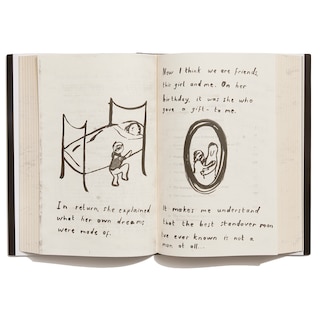 In return, she explained
what her own dreams
were made of.
Now I think we are friends,
this girl and me. On her
birthday, it was she who
gave a gift - to me.
It makes me understand
that the best standover man
I've ever known is not a
man at all...